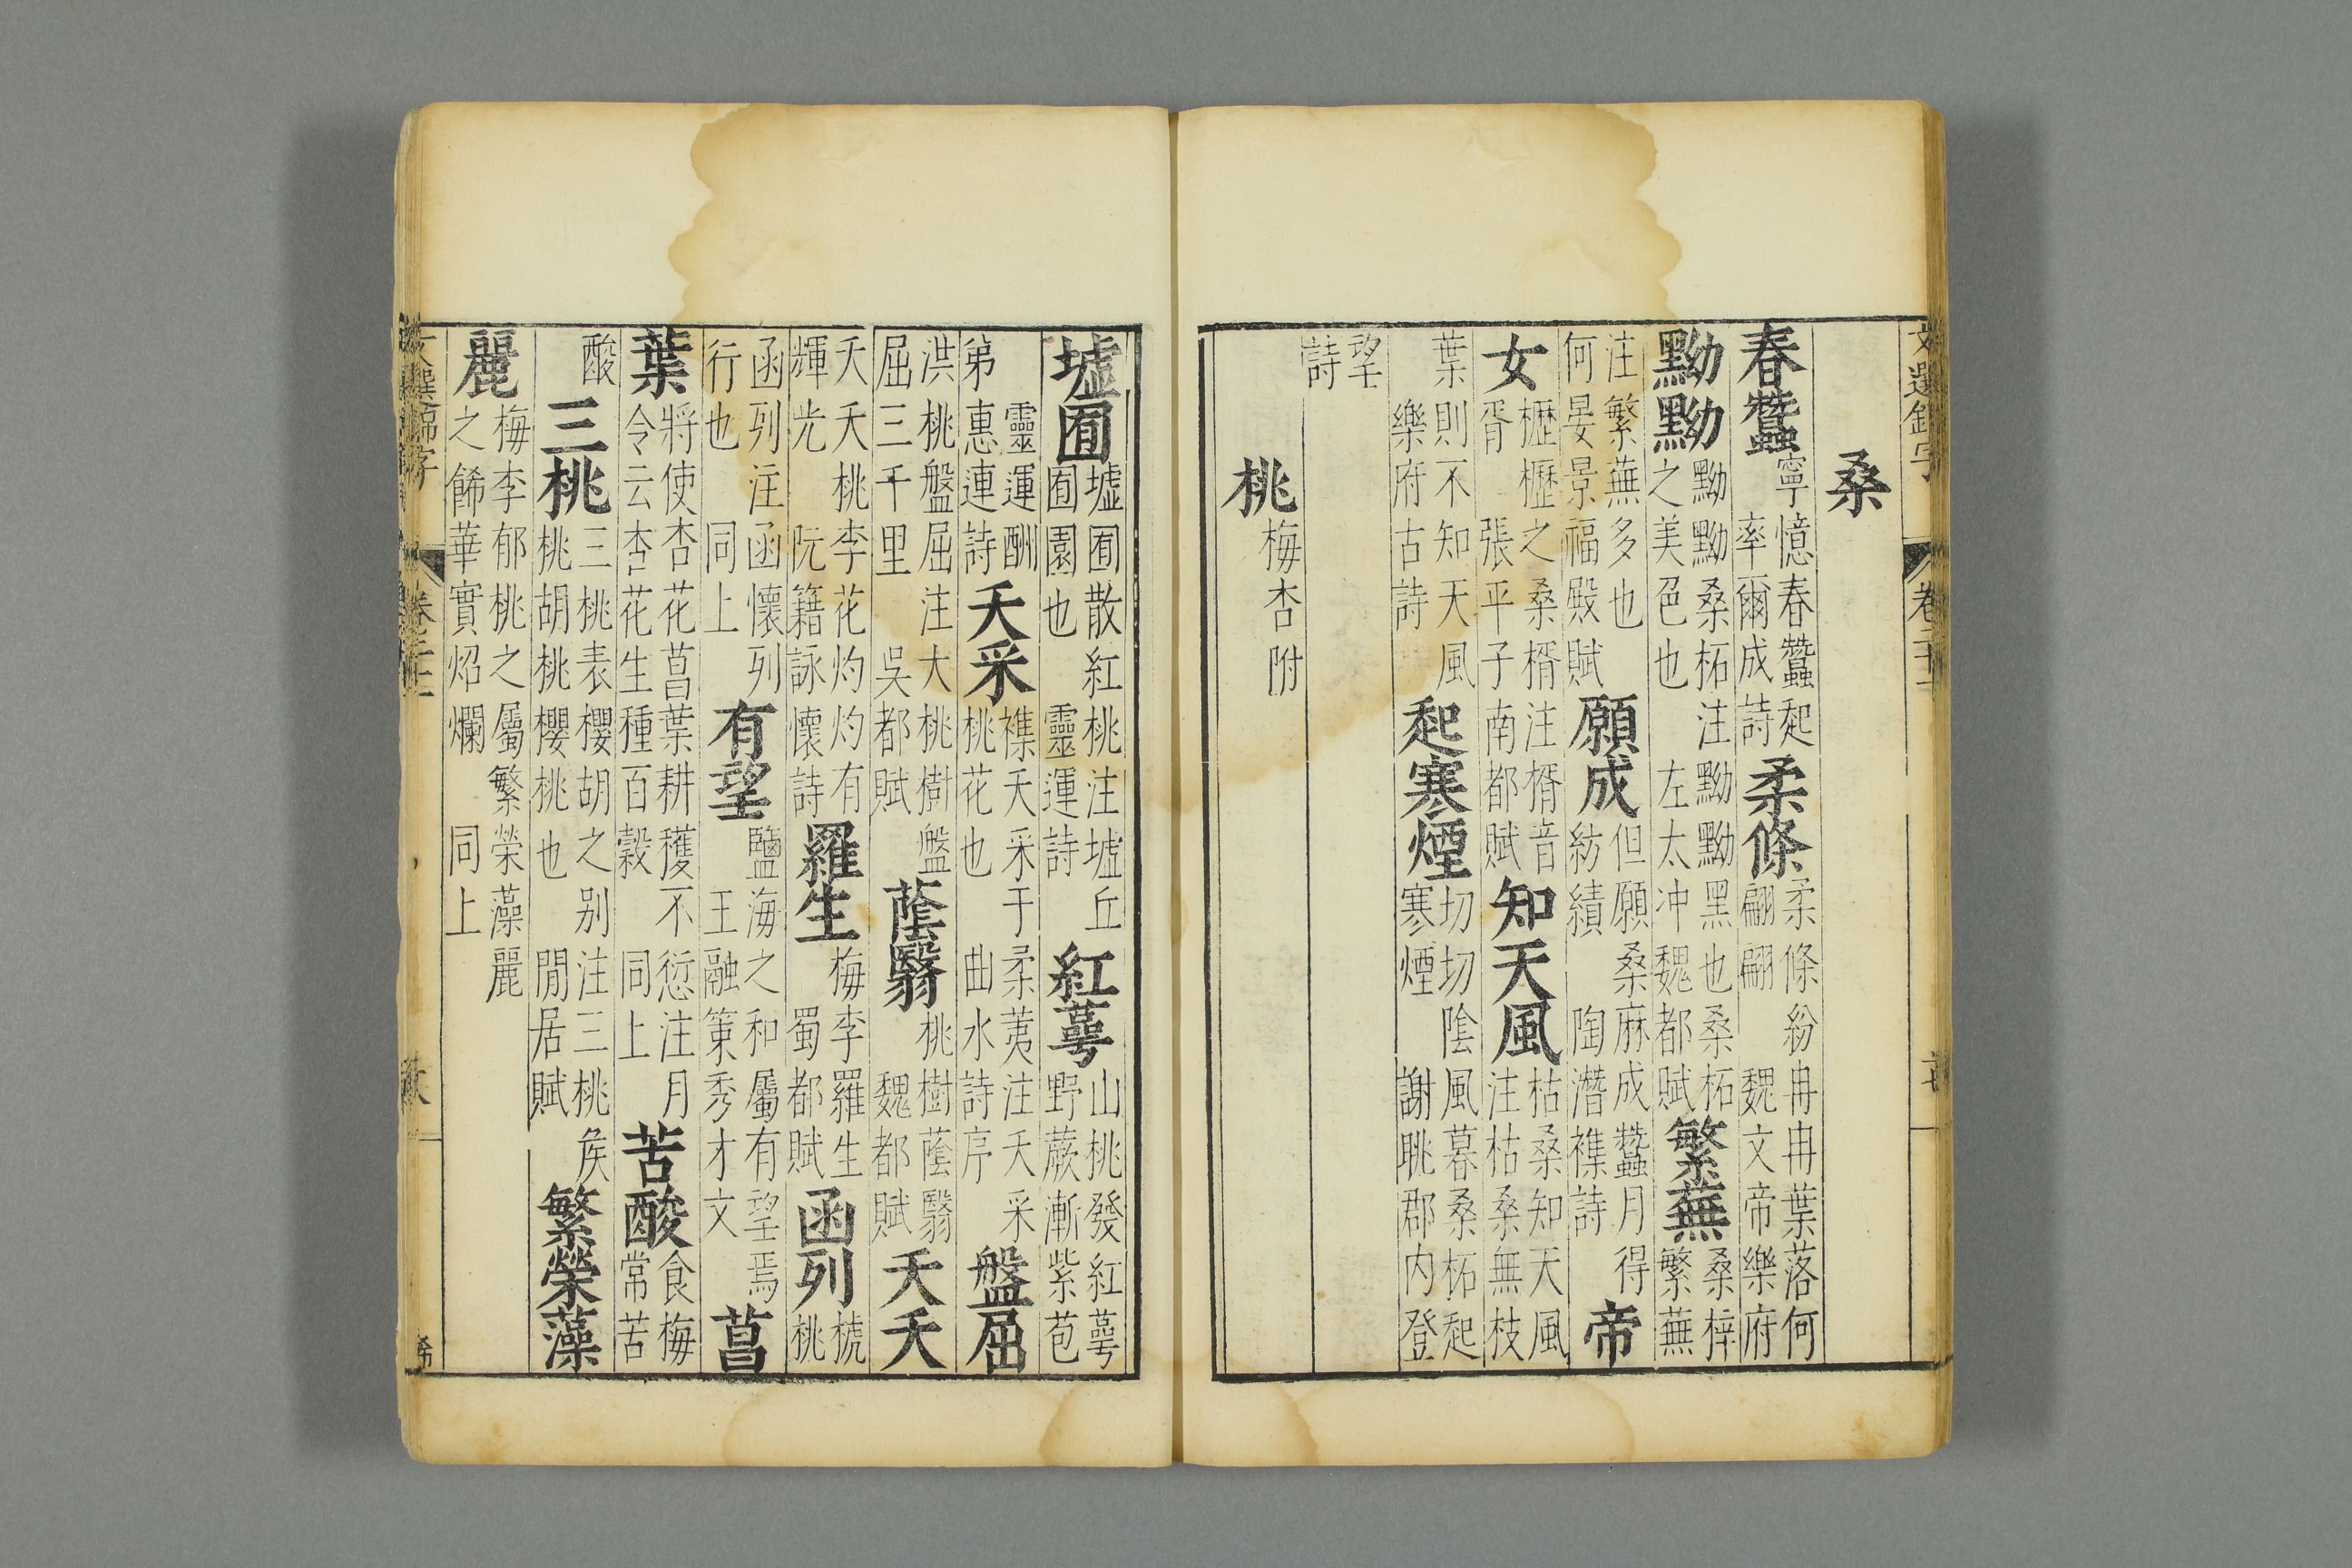 文選錦字 卷二十一
桑
春蠶 寧憶春蠶起率爾成詩 柔條 柔條紛冉冉葉落何翩翩 魏文帝樂府
黝黝 黝黝桑柘注黝黝黑也桑柘之美色也 左太冲魏都賦 繁蕪 桑梓繁蕪
注繁蕪多也何晏景福殿賦 願成 但願桑麻成蠶月得紡績 陶潛襍詩 帝
女 櫪櫪之桑楈注楈音胥 張平子南都賦 知天風 枯桑知天風注枯桑無枝
葉則不知天風 樂府古詩 起寒煙 切切陰風暮桑柘起寒煙 謝眺郡内登
望詩
桃 梅杏附
墟囿 墟囿散紅桃注墟丘囿園也 靈運詩 紅萼 山桃發紅萼野蕨漸紫苞
靈運酬第惠連詩 夭采 襍夭采于柔荑注夭采桃花也 曲水詩序 盤屈
洪桃盤屈注大桃樹盤屈三千里 吳都賦 蔭翳 桃樹蔭翳 魏都賦 夭夭
夭夭桃李花灼灼有輝光 阮籍詠懷詩 羅生 梅李羅生 蜀都賦 函列 榹桃
函列注函懷列行也 同上 有望 鹽海之和屬有望焉 王融策秀才文 菖
葉 將使杏花菖葉耕穫不愆注月令云杏花生種百穀 同上 苦酸 食梅常苦
酸 三桃 三桃表櫻胡之别注三桃侯桃胡桃櫻桃也 閒居賦 繁榮藻
麗 梅李郁桃之屬繁榮藻麗之餙華實炤爛 同上
文選錦字 卷二十一